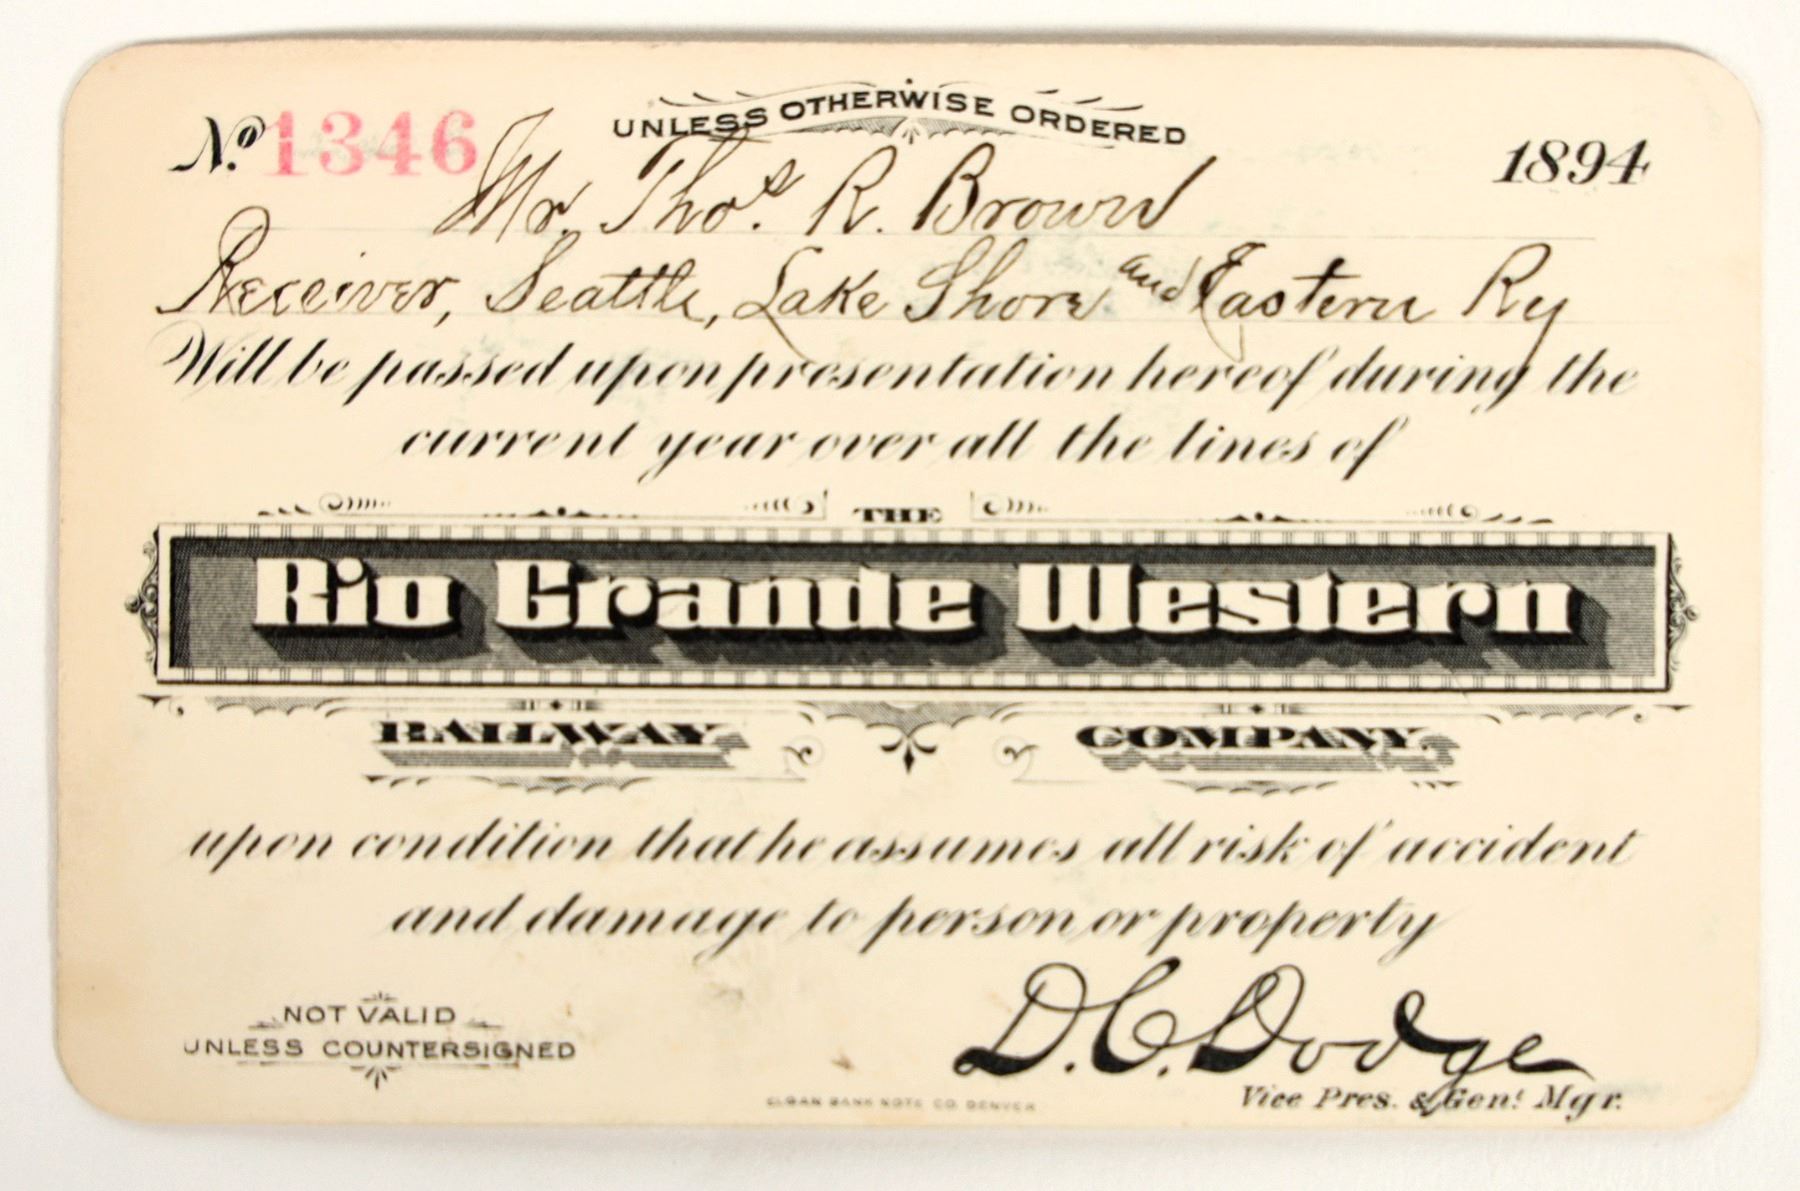 UNLESS OTHERWISE ORDERED
Nº 1346
1894
Mr. Thos. R. Brown
Receiver, Seattle, Lake Shore and Eastern Ry
Will be passed upon presentation hereof during the
current year over all the lines of
THE
Rio Grande Western
RAILWAY COMPANY.
upon condition that he assumes all risk of accident
and damage to person or property
NOT VALID
UNLESS COUNTERSIGNED
D.C. Dodge
Vice Pres. & Genl. Mgr.
BANK NOTE CO. DENVER